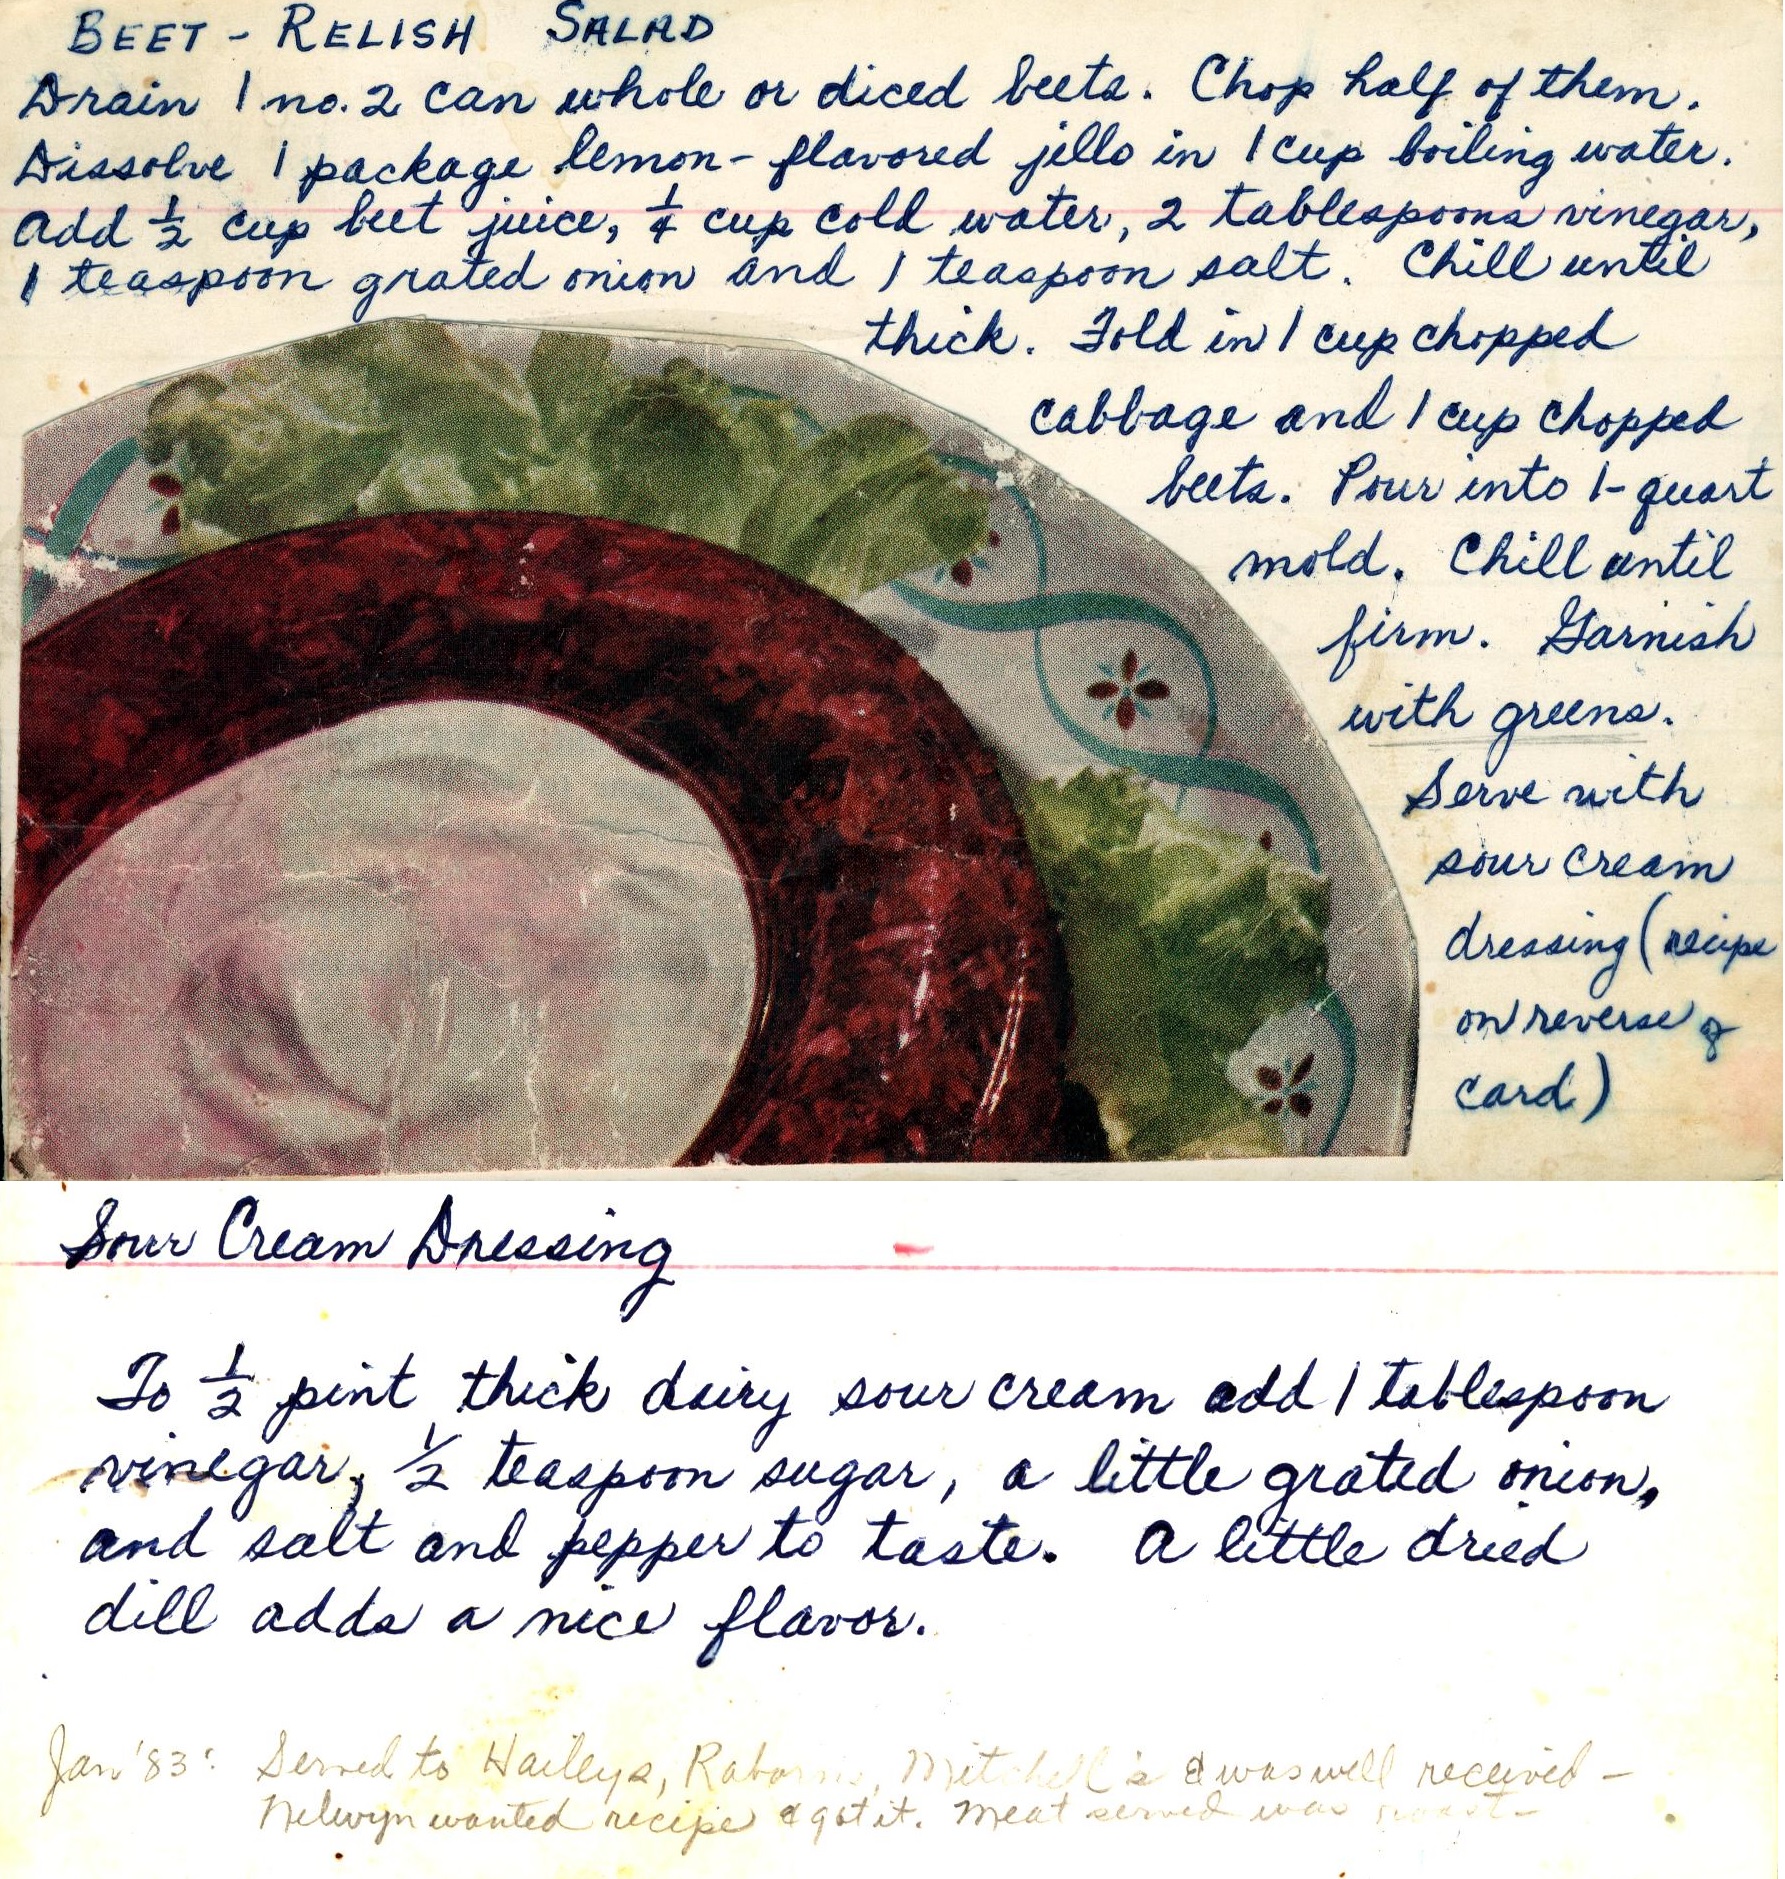 BEET - RELISH SALAD
Drain 1 no. 2 can whole or diced beets. Chop half of them.
Dissolve 1 package lemon-flavored jello in 1 cup boiling water.
Add ½ cup beet juice, ¼ cup cold water, 2 tablespoons vinegar,
1 teaspoon grated onion and 1 teaspoon salt. Chill until
thick. Fold in 1 cup chopped
cabbage and 1 cup chopped
beets. Pour into 1-quart
mold. Chill until
firm. Garnish
with greens.
Serve with
sour cream
dressing (recipe
on reverse of
card)
Sour Cream Dressing
To ½ pint thick dairy sour cream add 1 tablespoon
vinegar, ½ teaspoon sugar, a little grated onion,
and salt and pepper to taste. A little dried
dill adds a nice flavor.
Jan '83: Served to Haileys, Mitchell's & was well received -
Nelwyn wanted recipe & got it. Meat served was roast -